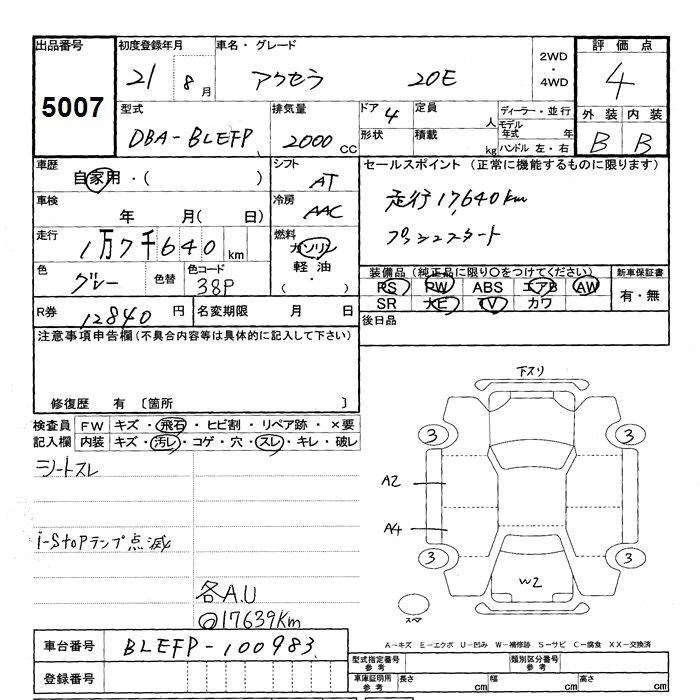 出品番号 初度登録年月 車名・グレード 2WD・4WD 評価点
5007 21 8月 アクセラ 20E 4
型式 排気量 ドア 4 定員 人 ディーラー・並行 外装 内装
DBA-BLEFP 2000 CC 形状 積載 kg モデル年式 年 ハンドル 左・右 B B
車歴 自家用・( ) シフト AT セールスポイント (正常に機能するものに限ります)
車検 年 月( 日) 冷房 AAC 走行17,640km
走行 1万7千640km 燃料 ガソリン 軽油 ( ・ ) プッシュスタート
色 グレー 色替 色コード 38P 装備品 (純正品に限り○をつけてください) 新車保証書
PS PW ABS エアB AW 有・無
SR ナビ TV カワ
R券 12840円 名変期限 月 日 後日品
注意事項申告欄(不具合内容等は具体的に記入して下さい)
修復歴 有 〔箇所 〕
検査員 FW キズ・飛石・ヒビ割・リペア跡・×要
記入欄 内装 キズ・汚レ・コゲ・穴・スレ・キレ・破レ
シートスレ
i-stopランプ点滅
各A.U
@17639Km
下スリ
3 3
A2
A4
3 3
W2
スペア
車台番号 BLEFP-100983
登録番号
A-キズ E-エクボ U-凹み W-補修跡 S-サビ C-腐食 XX-交換済
型式指定番号 参考 類別区分番号 参考
車庫証明用 参考 長さ cm 幅 cm 高さ cm